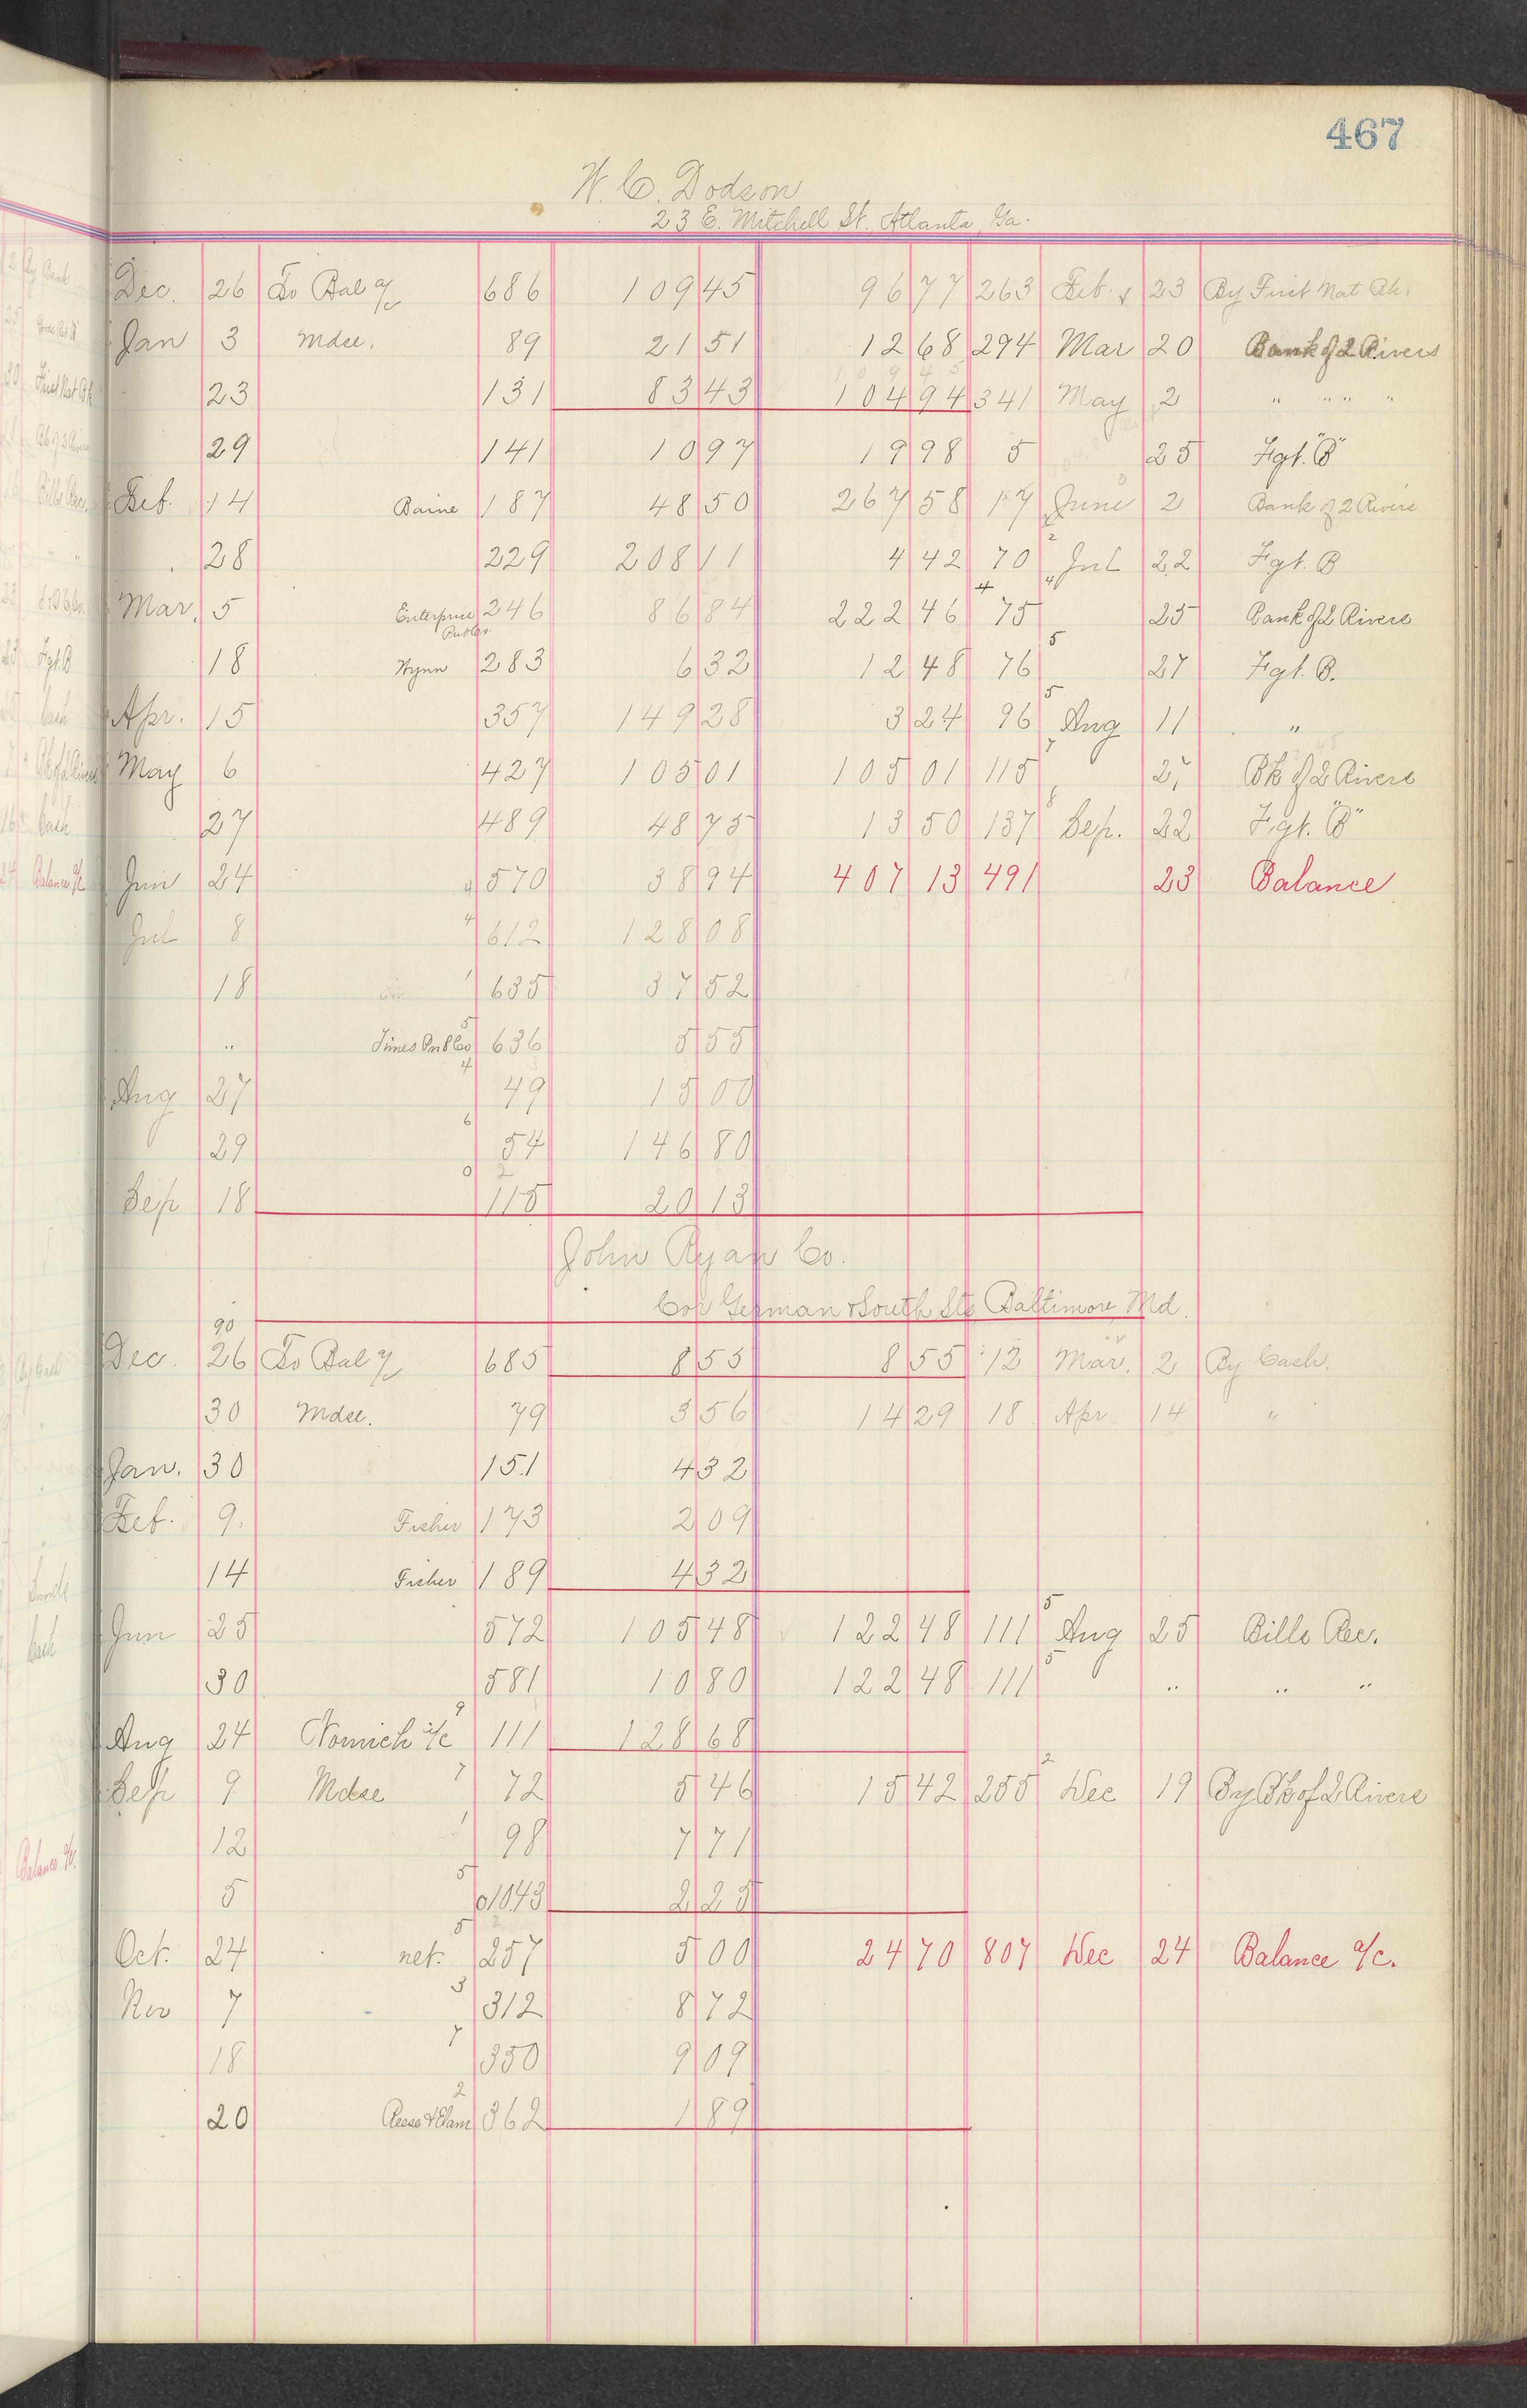 467
W. C. Dodson
23 E. Mitchell St. Atlanta, Ga.
Dec. 26 To Bal a/c 686 109 45 96 77 263 Feb. 23 By First Nat Bk.
Jan 3 Mdse. 89 21 51 12 68 294 Mar 20 Bank of 2 Rivers
109 45
23 131 83 43 104 94 341 May 2 " " " "
29 141 10 97 19 98 5 25 Fgt. "B"
Feb. 14 Baine 187 48 50 267 58 17 June 2 Bank of 2 Rivers
28 229 208 11 4 42 70 2 Jul 22 Fgt. B
Mar. 5 Enterprise 246 86 84 222 46 4 75 4 25 Bank of 2 Rivers
18 Wynn 283 6 32 12 48 76 5 27 Fgt. B.
Apr. 15 357 149 28 3 24 96 5 Aug 11 "
May 6 427 105 01 105 01 115 7 27 Bk of 2 Rivers
27 489 48 75 13 50 137 8 Sep. 22 Fgt. "B"
Jun 24 4 570 38 94 407 13 491 23 Balance
Jul 8 4 612 128 08
18 1 635 37 52
" Times Pub Co 5 636 5 55
Aug 27 4 49 15 00
29 6 54 146 80
Sep 18 0 2 115 20 13
John Ryan Co.
Cor German & South Sts Baltimore, Md.
90
Dec. 26 To Bal a/c 685 8 55 8 55 12 Mar. 2 By Cash.
30 Mdse. 79 3 56 14 29 18 Apr. 14 "
Jan. 30 151 4 32
Feb. 9. Fisher 173 2 09
14 Fisher 189 4 32
Jun 25 572 105 48 122 48 111 5 Aug 25 Bills Rec.
30 581 10 80 122 48 111 5 " " "
Aug 24 Norwich a/c 9 111 128 68
Sep 9 Mdse 7 72 5 46 15 42 255 2 Dec 19 By Bk of 2 Rivers
12 1 98 7 71
5 5 1043 2 25
Oct. 24 net. 5 2 257 5 00 24 70 807 Dec 24 Balance a/c.
Nov 7 3 312 8 72
18 7 350 9 09
20 Reese & Elam 2 362 1 89